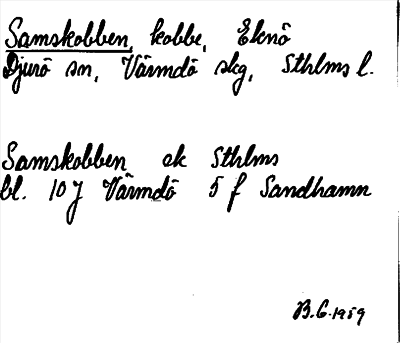 Samskobben, kobbe, Eknö
Djurö sn, Värmdö skg, Sthlms l.
Samskobben ek Sthlms
bl. 10 J Värmdö 5 f Sandhamn
B.G. 1959